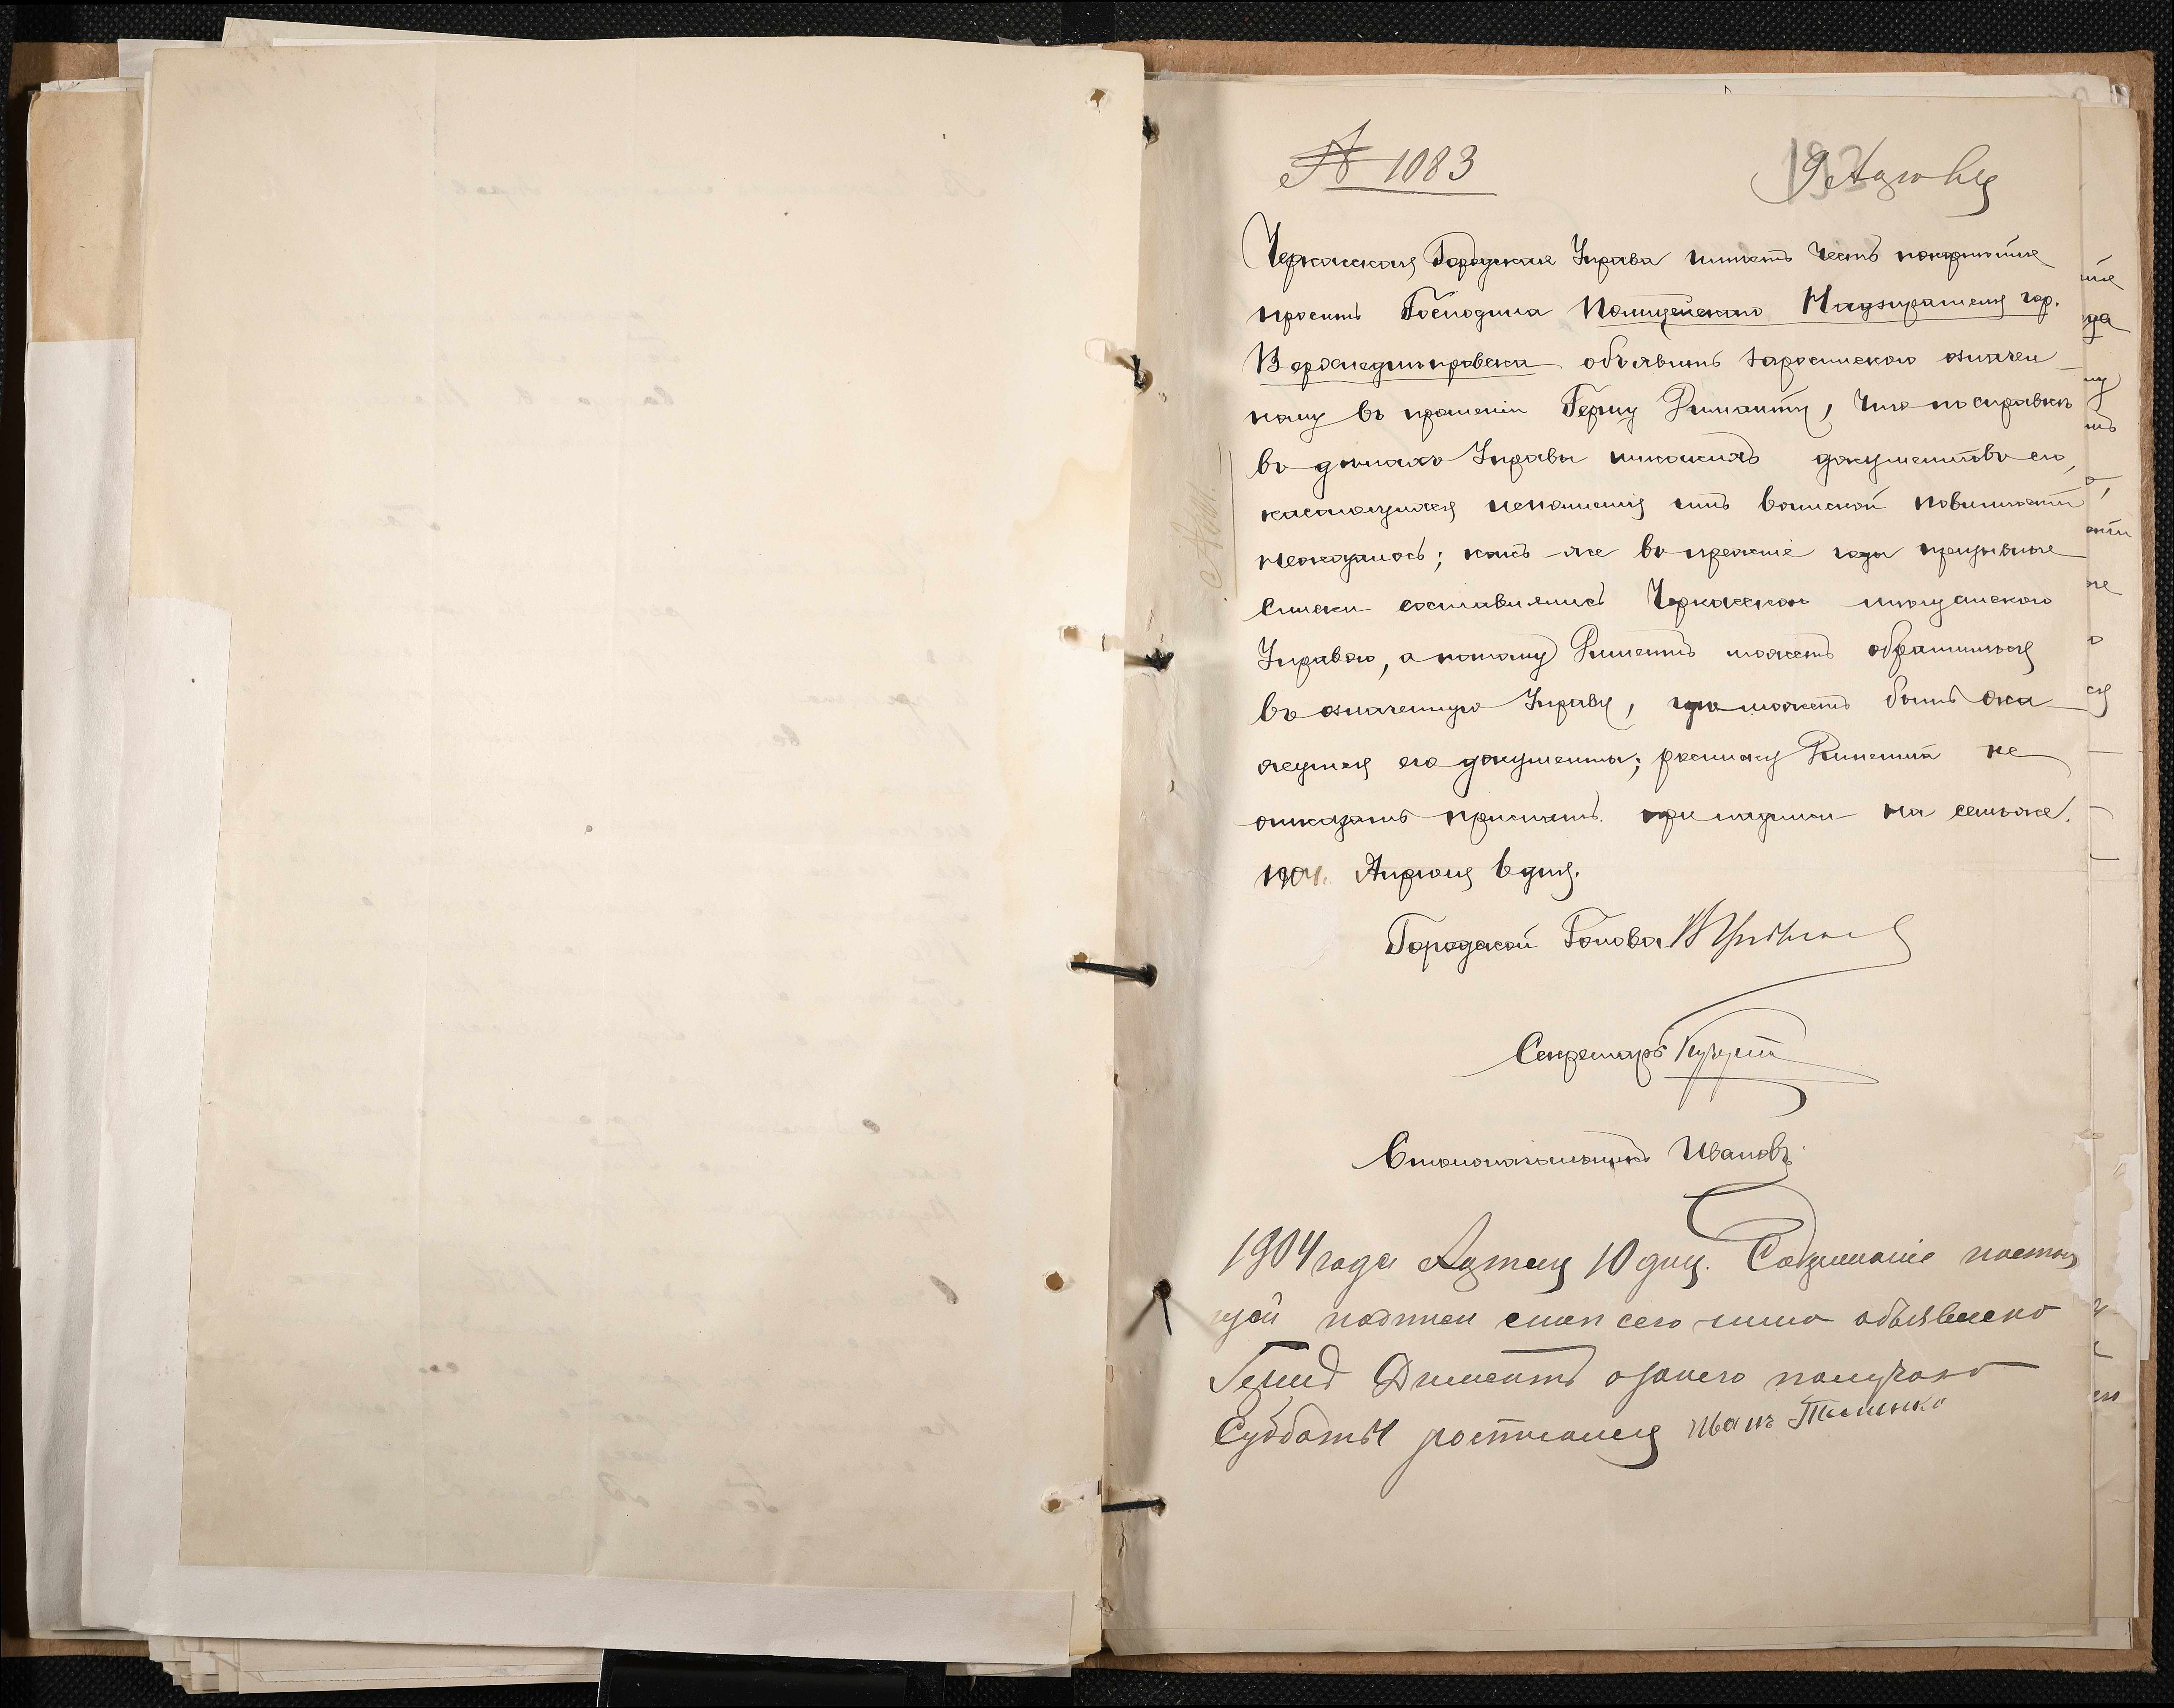 № 1083
Черкасская Городская Управа имѣетъ честь покорнѣйше
просить Господина Полицейскаго Надзирателя гор.
Верхнеднѣпровска объявить зароспискою означен-
ному въ прошеніи Гершу Диманту, что по справкѣ
въ дѣлахъ Управы никакихъ документовъ его,
касающихся исполненія имъ воинской повинности
неоказалось; какъ-же въ прежніе года призывные
списки составлялись Черкасскою мѣщанскою
Управою, а потому Диментъ можетъ обратиться
въ означенную Управу, гдѣ можетъ быть ока-
жутся его документы; росписку Димента не
отказать прислать при надписи на семъ же.
1904. Апрѣля 6 дня.
Городской Голова
Секретарь
Столоначальникъ Ивановъ
1904 года Апрѣля 10 дня. Содержаніе настоя
щей надписи сего числа объявлено
Диментъ
росписался Иванъ